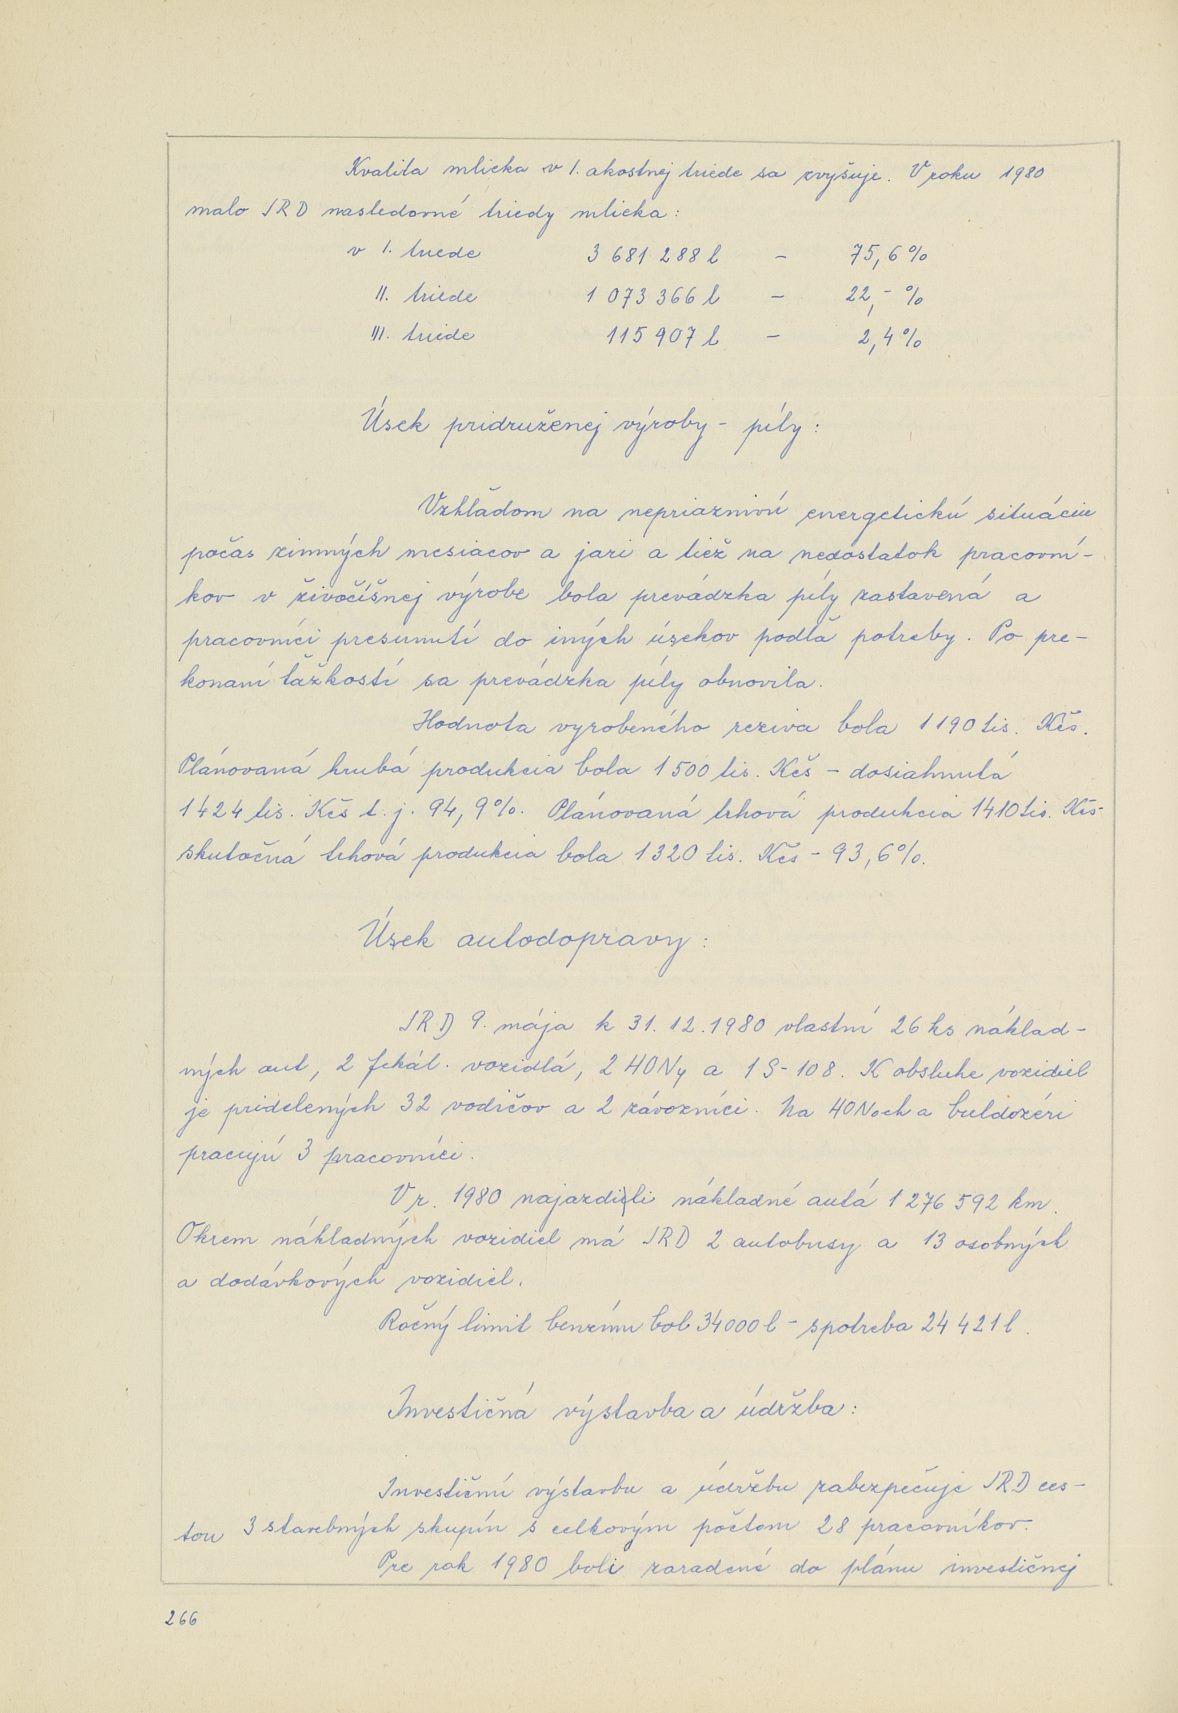 Kvalita mlieka v I. akostnej triede sa zvyšuje. V roku 1980
malo JRD nasledovné triedy mlieka:
v I. triede 3 681 288 l – 75,6 %
II. triede 1 073 366 l – 22,– %
III. triede 115 907 l – 2,4 %
Úsek pridruženej výroby – píly:
Vzhľadom na nepriaznivú energetickú situáciu
počas zimných mesiacov a jari a tiež na nedostatok pracovní-
kov v živočíšnej výrobe bola prevádzka píly zastavená a
pracovníci presunutí do iných úsekov podľa potreby. Po pre-
konaní ťažkostí sa prevádzka píly obnovila.
Hodnota vyrobeného reziva bola 1 190 tis. Kčs.
Plánovaná hrubá produkcia bola 1 500 tis. Kčs – dosiahnutá
1 424 tis. Kčs t. j. 94,9 %. Plánovaná trhová produkcia 1410 tis. Kčs-
skutočná trhová produkcia bola 1 320 tis. Kčs – 93,6 %.
Úsek autodopravy:
JRD 9. mája k 31. 12. 1980 vlastní 26 ks náklad-
ných aut, 2 fekál. vozidlá, 2 HONy a 1 S-108. K obsluhe vozidiel
je pridelených 32 vodičov a 2 závozníci. Na HONoch a buldozéri
pracujú 3 pracovníci.
V r. 1980 najazdili nákladné autá 1 276 592 km.
Okrem nákladných vozidiel má JRD 2 autobusy a 13 osobných
a dodávkových vozidiel.
Ročný limit benzínu bol 34000 l – spotreba 24 421 l.
Investičná výstavba a údržba:
Investičnú výstavbu a údržbu zabezpečuje JRD ces-
tou 3 stavebných skupín s celkovým počtom 28 pracovníkov.
Pre rok 1980 boli zaradené do plánu investičnej
266